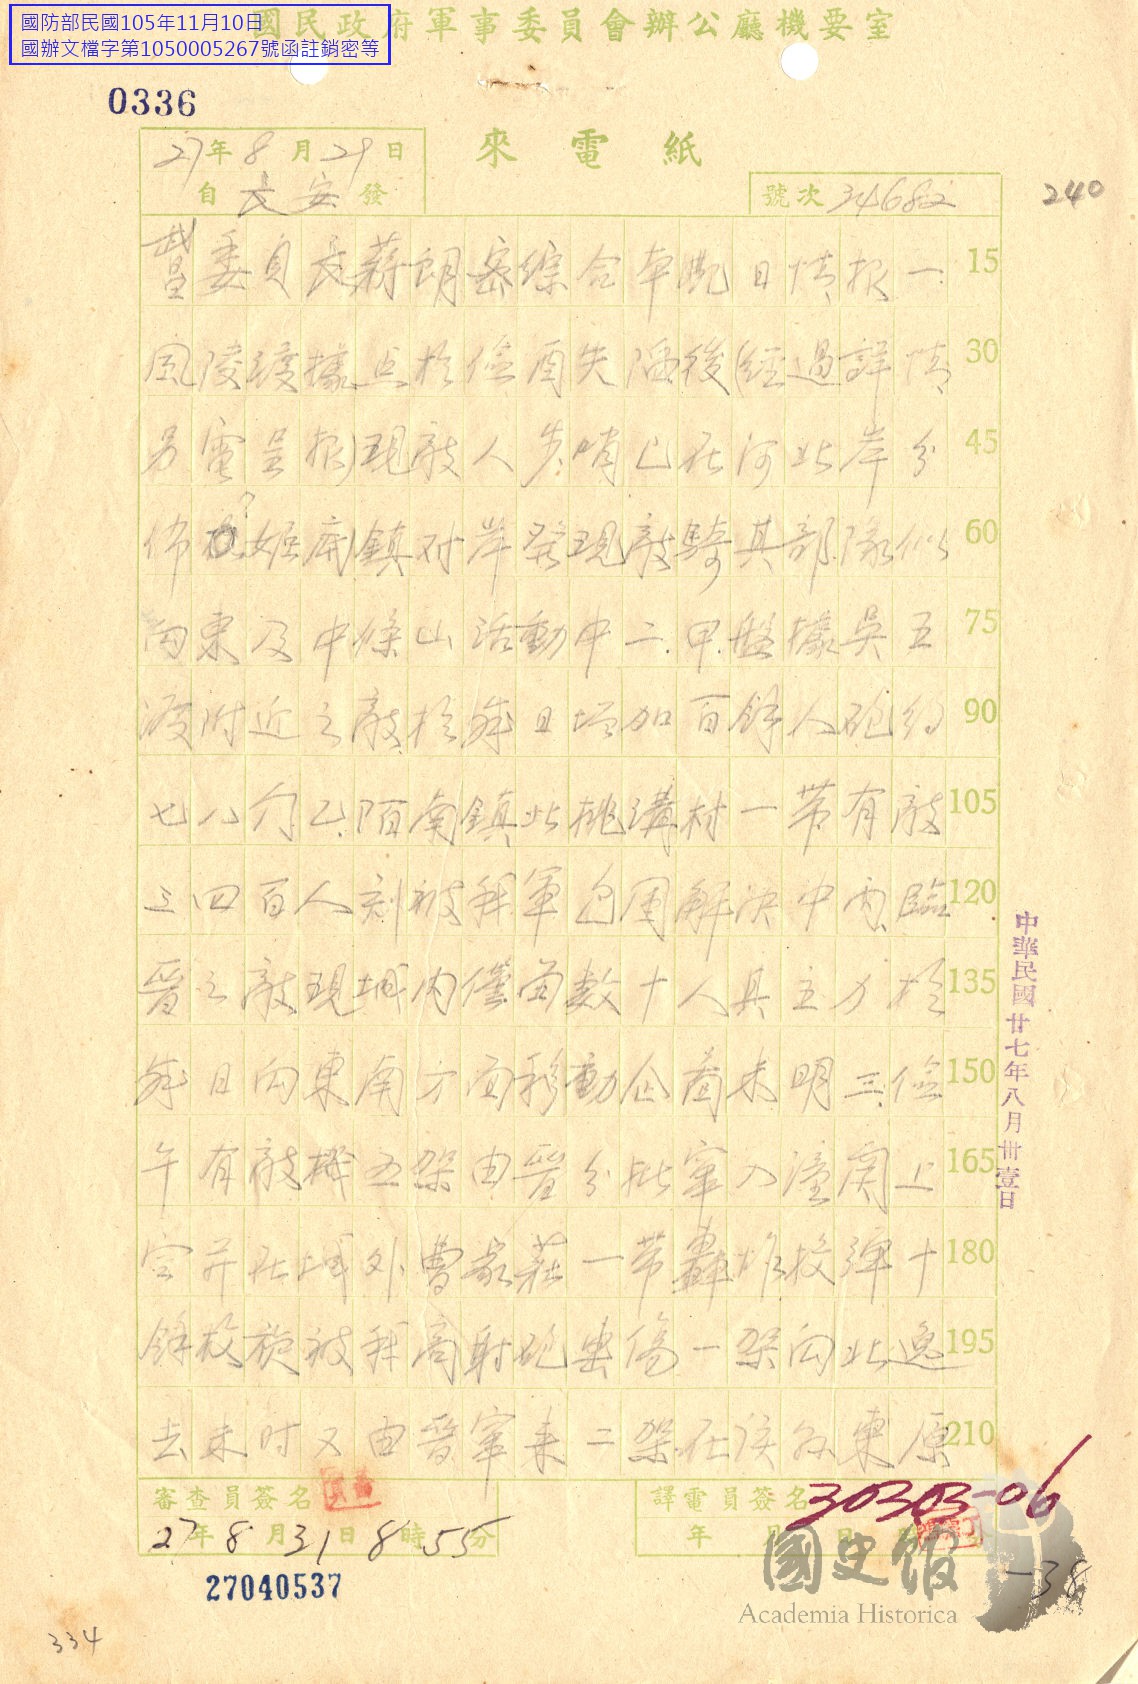 國防部民國105年11月10日
國辦文檔字第1050005267號函註銷密等
國民政府軍事委員會辦公廳機要室
0336
來電紙
27年8月29日
自長安發
號次34682
240
委員長蔣 密綜合 日情報一. 15
風陵渡據点於儉酉失陷後(經過詳情 30
另電呈報)現敵人步哨已在河北岸分 45
佈 ? 鎮对岸發現敵騎其部隊似 60
向東及中條山活動中二.甲.盤據吳王 75
渡附近之敵於 日增加百餘人砲約 90
七八门乙.陌南鎮北桃溝村一帶有敵 105
三四百人刻被我軍包圍解决中丙.臨 120
晉之敵現城内僅留數十人其主力於 135
日向東南方面移動企啚未明三.儉 150
午有敵機五架由晉分批竄入潼関上 165
空并在城外曹家莊一帶轟炸投彈十 180
餘枚旋被我高射砲击傷一架向北逸 195
去未时又由晉竄来二架在該縣東原 210
審查員簽名
27年8月31日8時55分
譯電員簽名
年 月 日
30303-06
27040537
中華民國廿七年八月卅壹日
國史館
Academia Historica
-38
334